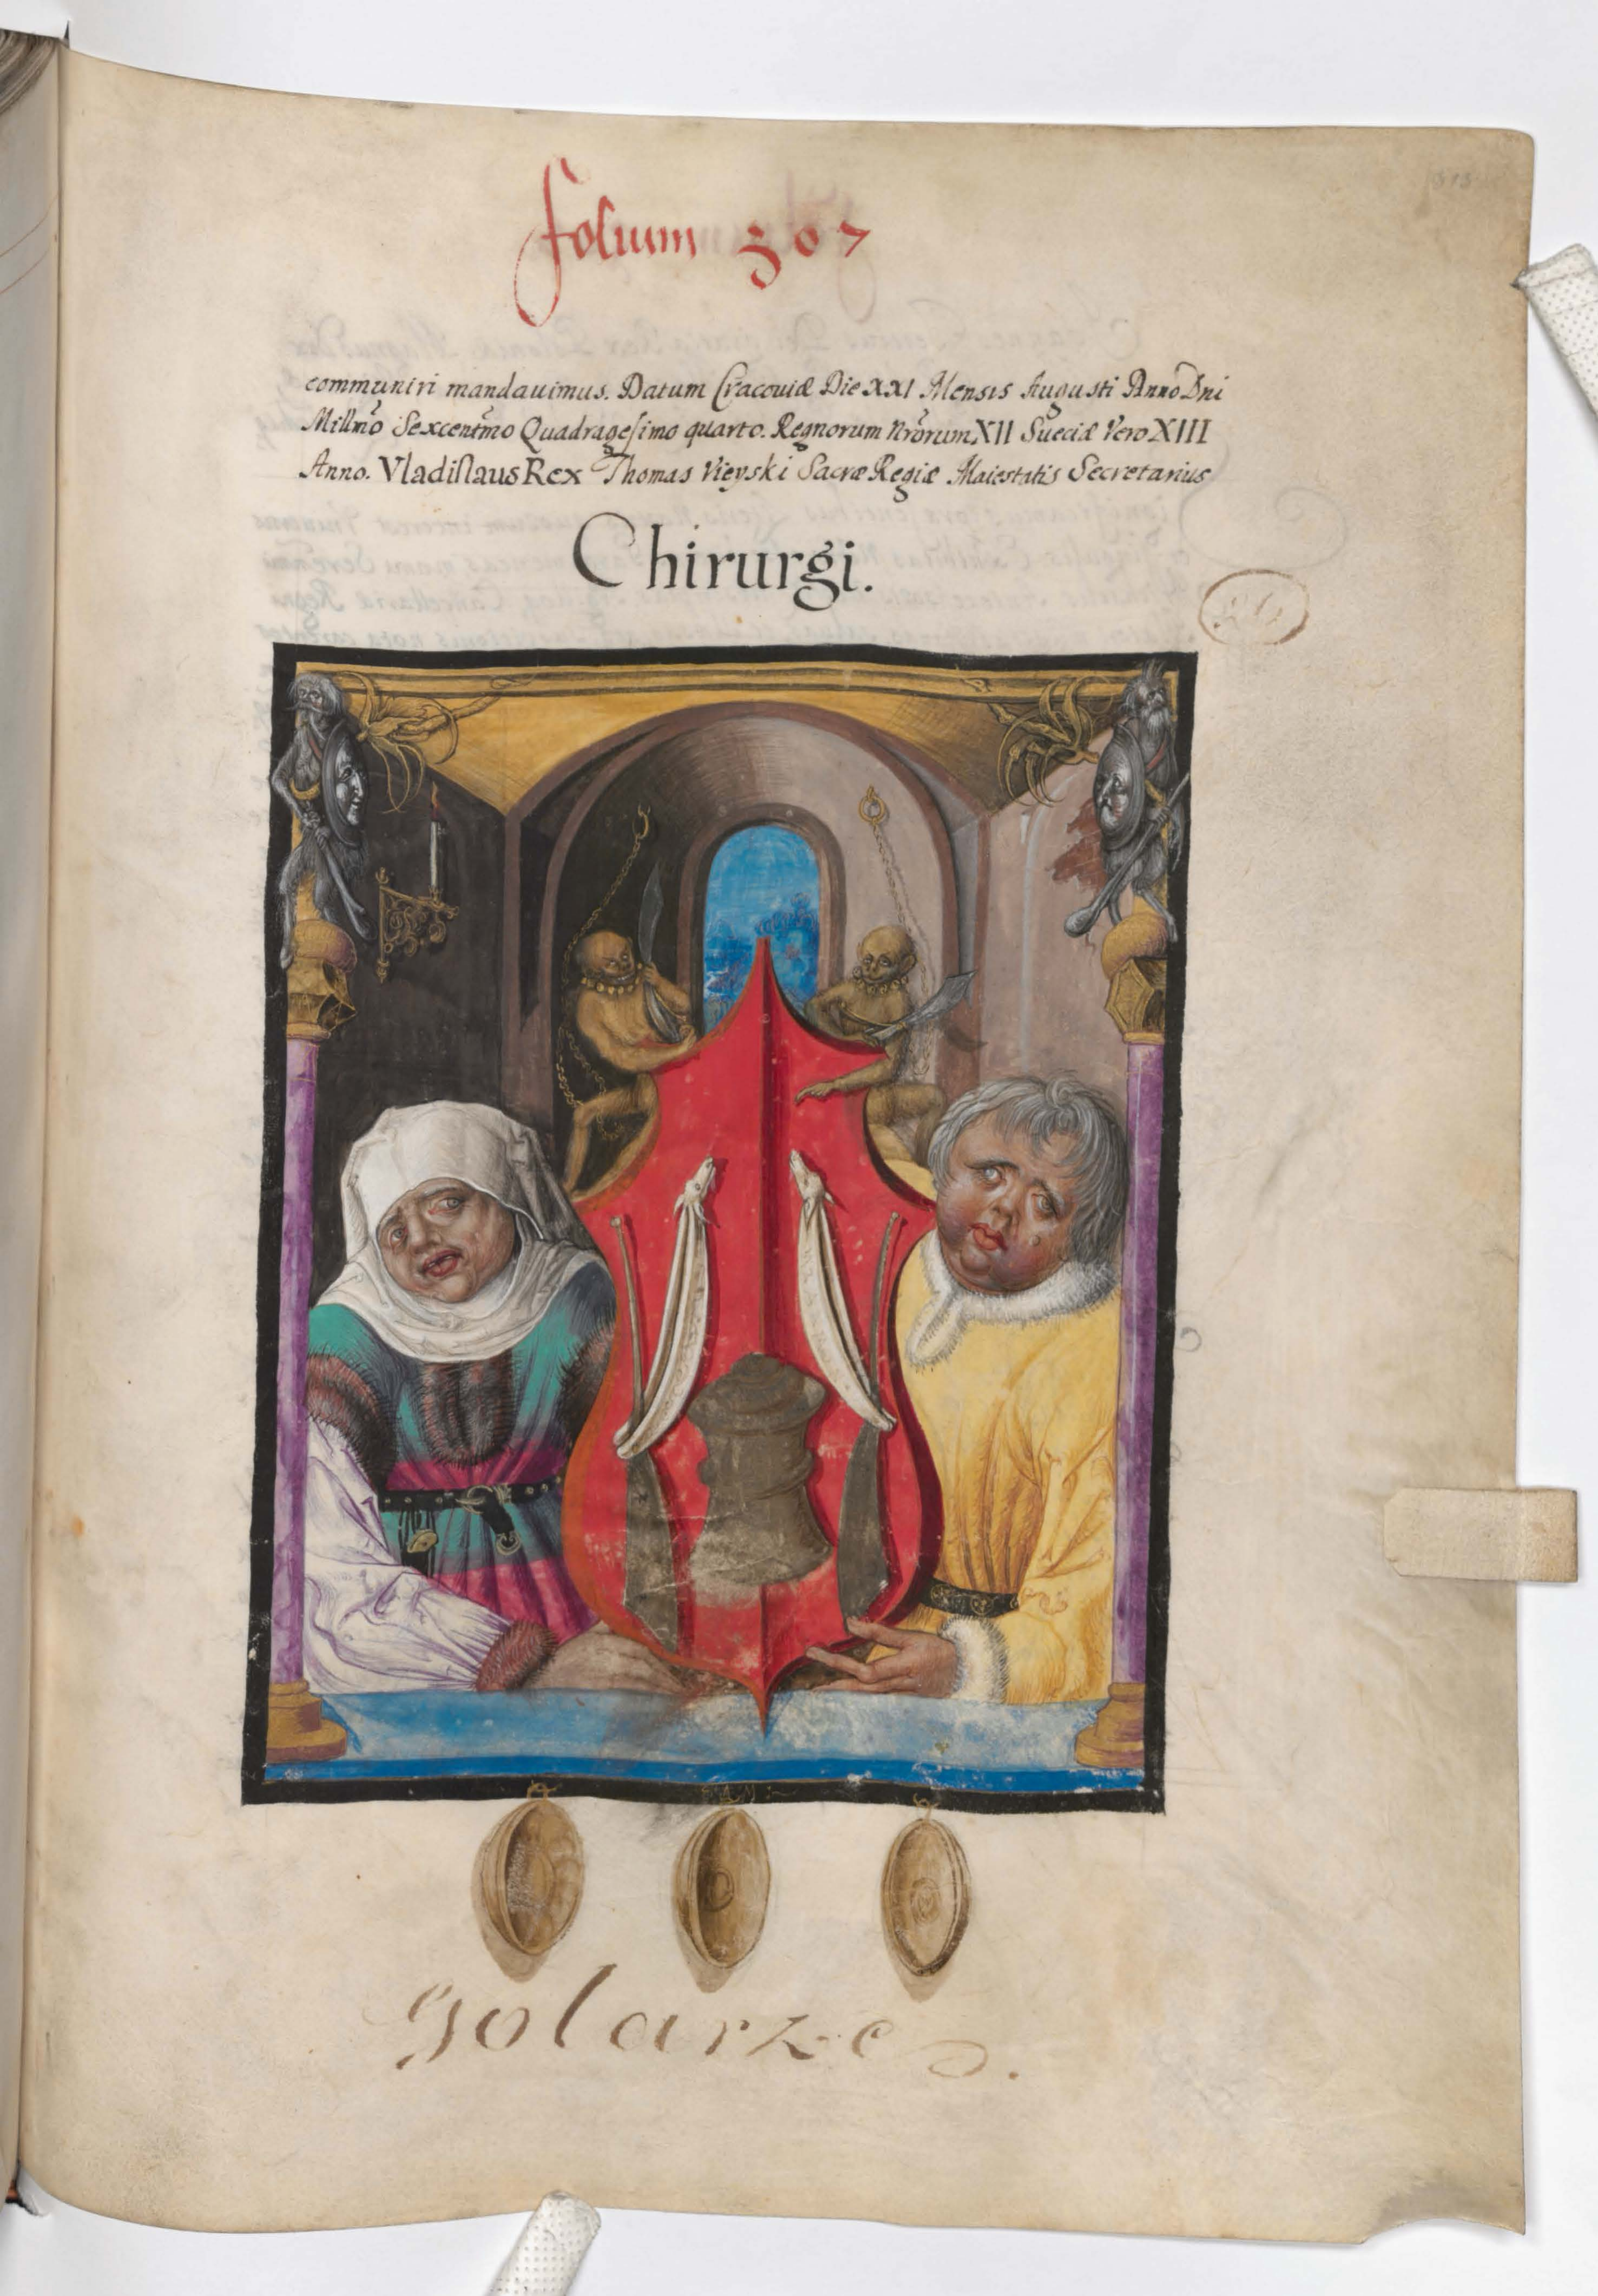 folium 307
communiri mandauimus. Datum Cracouiæ Die XXI Mensis Augusti Anno Dni
Millmo Sexcentmo Quadragesimo quarto. Regnorum nrorum XII Sueciæ Vero XIII
Anno. Vladislaus Rex Thomas Vieyski Sacræ Regiæ Maiestatis Secretarius
Chirurgi.
golarze.